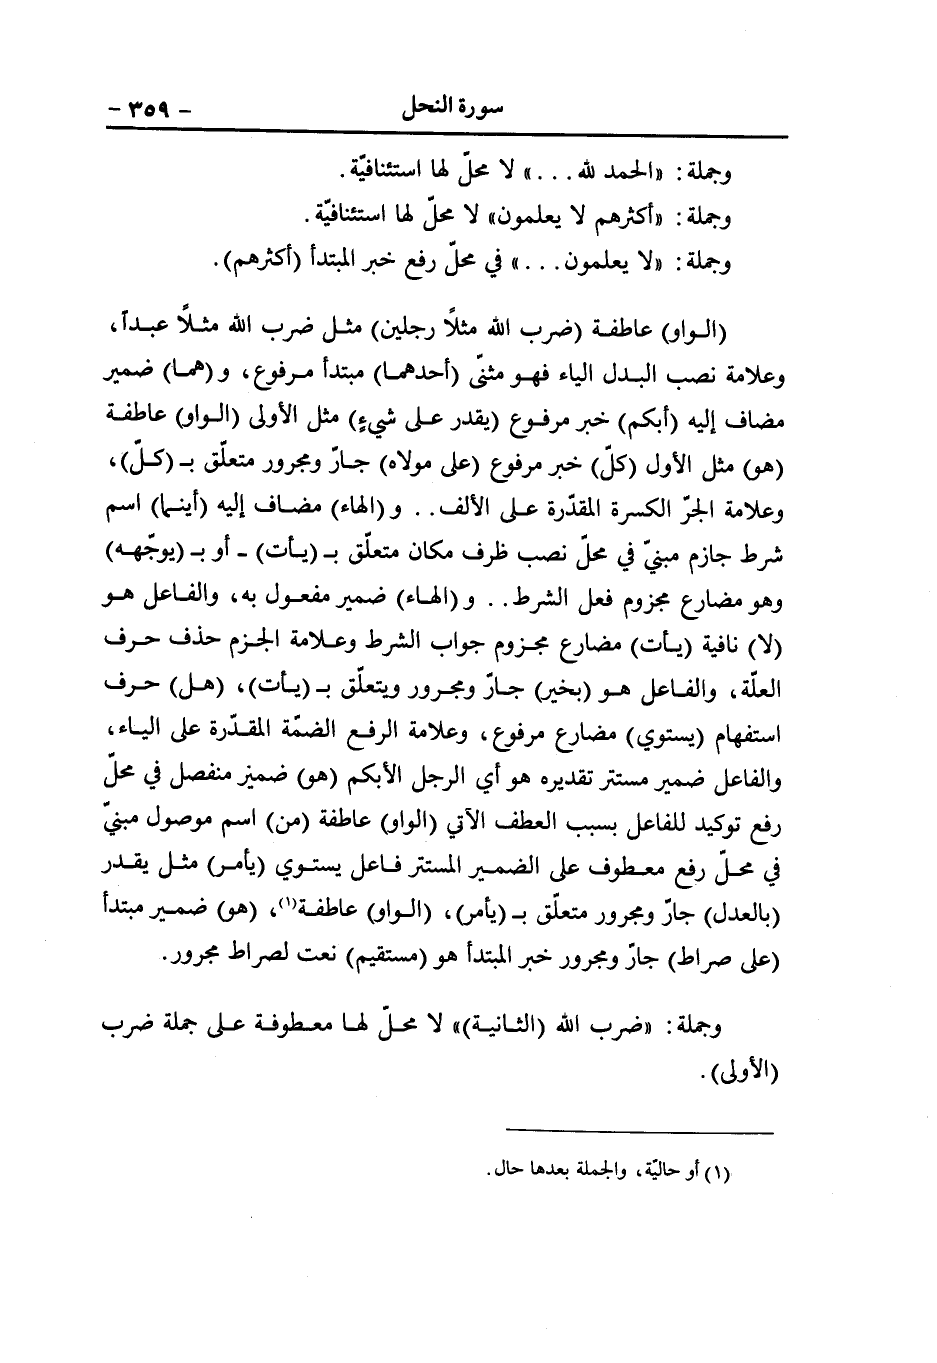 سورة النحل - ٣٥٩ -
وجملة: «الحمد لله . . .» لا محلّ لها استئنافيّة.
وجملة: «أكثرهم لا يعلمون» لا محلّ لها استئنافيّة.
وجملة: «لا يعلمون . . .» في محلّ رفع خبر المبتدأ (أكثرهم).
(الواو) عاطفة (ضرب الله مثلاً رجلين) مثل ضرب الله مثلاً عبداً،
وعلامة نصب البدل الياء فهو مثنّى (أحدهما) مبتدأ مرفوع، و(هما) ضمير
مضاف إليه (أبكم) خبر مرفوع (يقدر على شيءٍ) مثل الأولى (الواو) عاطفة
(هو) مثل الأول (كلّ) خبر مرفوع (على مولاه) جارّ ومجرور متعلّق بـ (كلّ)،
وعلامة الجرّ الكسرة المقدّرة على الألف . . و(الهاء) مضاف إليه (أينما) اسم
شرط جازم مبنيّ في محلّ نصب ظرف مكان متعلّق بـ (يأت) - أو بـ (يوجّهه)
وهو مضارع مجزوم فعل الشرط . . و(الهاء) ضمير مفعول به، والفاعل هو
(لا) نافية (يأت) مضارع مجزوم جواب الشرط وعلامة الجزم حذف حرف
العلّة، والفاعل هو (بخير) جارّ ومجرور ويتعلّق بـ (يأت)، (هل) حرف
استفهام (يستوي) مضارع مرفوع، وعلامة الرفع الضمّة المقدّرة على الياء،
والفاعل ضمير مستتر تقديره هو أي الرجل الأبكم (هو) ضمير منفصل في محلّ
رفع توكيد للفاعل بسبب العطف الآتي (الواو) عاطفة (من) اسم موصول مبنيّ
في محلّ رفع معطوف على الضمير المستتر فاعل يستوي (يأمر) مثل يقدر
(بالعدل) جارّ ومجرور متعلّق بـ (يأمر)، (الواو) عاطفة(١)، (هو) ضمير مبتدأ
(على صراط) جارّ ومجرور خبر المبتدأ هو (مستقيم) نعت لصراط مجرور.
وجملة: «ضرب الله (الثانية)» لا محلّ لها معطوفة على جملة ضرب
(الأولى).
(١) أو حاليّة، والجملة بعدها حال.